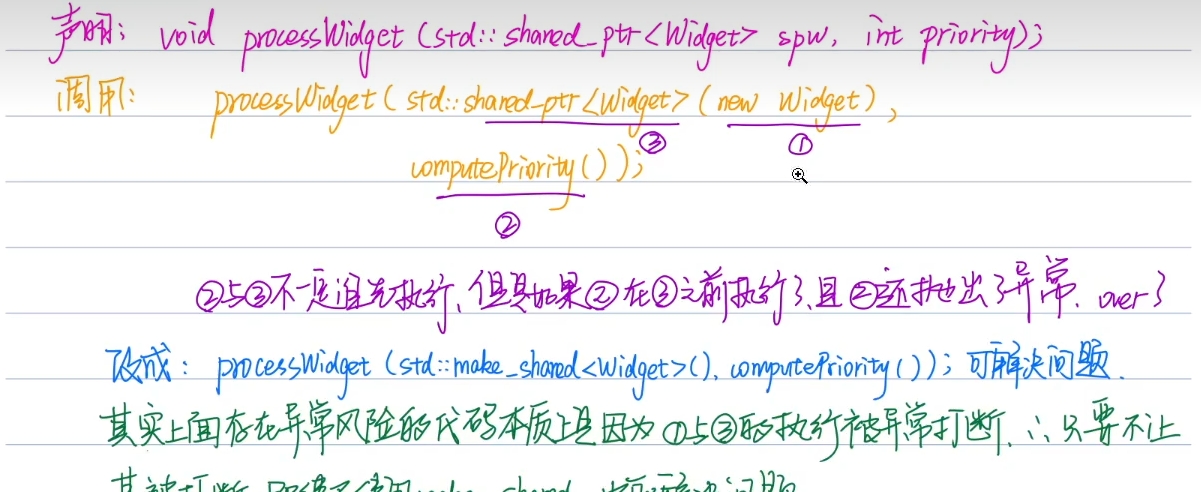 声明: void processWidget (std::shared_ptr<Widget> spw, int priority);
调用: processWidget( std::shared_ptr<Widget> (new Widget),
③ ①
computePriority());
②
②与③不一定谁先执行、但是如果②在③之前执行了、且②还抛出了异常. over了
改成: processWidget (std::make_shared<Widget>(), computePriority()); 可解决问题.
其实上面存在异常风险的代码本质上是因为①与③的执行被异常打断. ∴只要不让
其被打断 make_shared